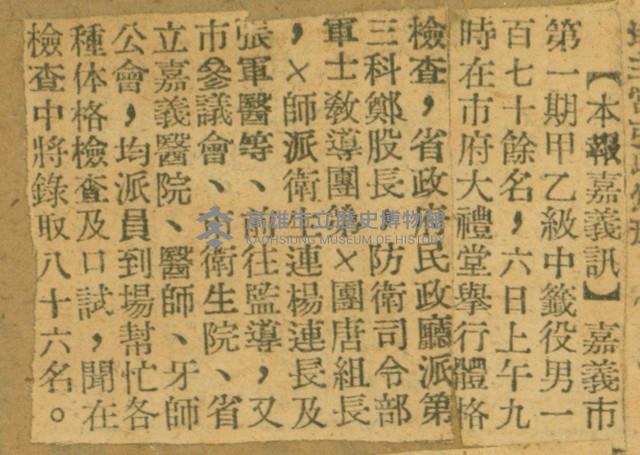 【本報嘉義訊】嘉義市
第一期甲乙級中籤役男一
百七十餘名，六日上午九
時在市府大禮堂舉行體格
檢查，省政府民政廳派第
三科鄭股長，防衛司令部
軍士敎導團後×團唐組長
，×師派衛生連楊連長及
張軍醫等、前往監導，又
市參議會、市衛生院、省
立嘉義醫院、醫師、牙師
公會，均派員到場幫忙各
種体格檢查及口試，聞在
檢查中將錄取八十六名。
高雄市立歷史博物館
KAOHSIUNG MUSEUM OF HISTORY